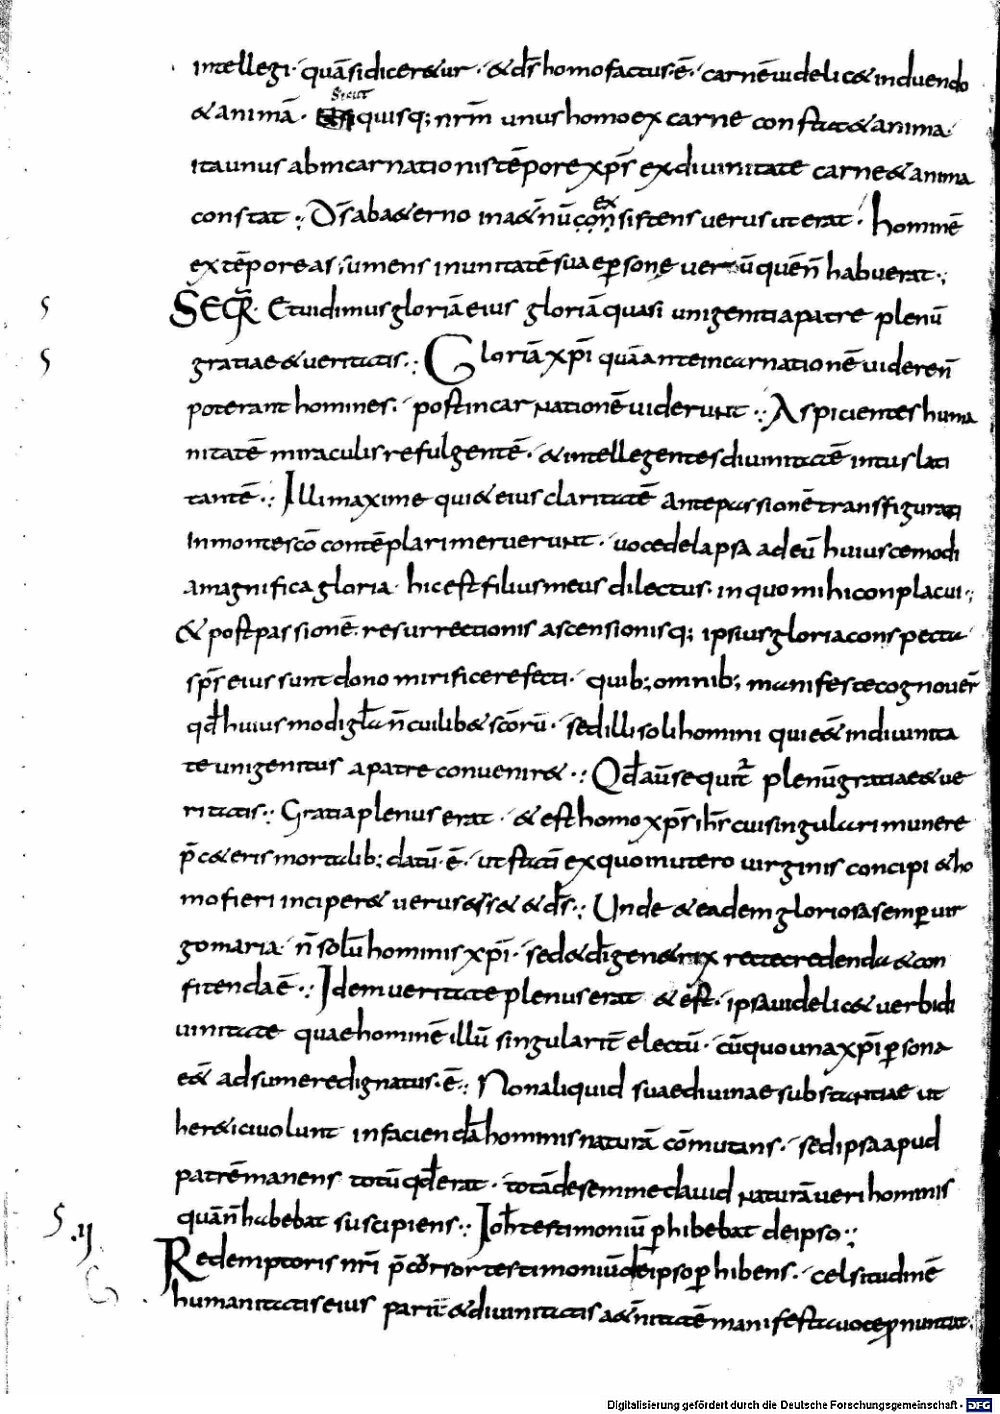 intellegi· quā si diceretur· & ds̄ homo factus·ē· carnē uidelic& induendo
& animā· sicut quisq; nrm̄ unus homo ex carne constat & anima·
ita unus ab incarnationis tēpore xp̄s ex diuinitate carne & anima
constat·; Ds̄ ab aeterno in aet̄nū ex con sistens uerus ut erat· hominē
ex tēpore assumens in unitatē suae ꝑsonę uerū quē n̄ habuerat·;
SEQR̄· Et uidimus gloriā eius gloriā quasi unigeniti a patre plenū
gratiae & ueritatis·; Gloriā xp̄i quā ante incarnationē uidere n̄
poterant homines· post incarnationē uiderunt·; Aspicientes huma
nitatē miraculis refulgentē· & intellegentes diuinitatē intus lati
tantē·; Illi maxime qui & eius claritatē ante passionē transfigurati
In monte sc̄o contēplari meruerunt· uoce delapsa ad eū huiuscemodi
a magnifica gloria· hic est filius meus dilectus· in quo mihi conplacui·;
& post passionē· resurrectionis ascensionisq; ipsius gloria conspecta
sp̄s eius sunt dono mirifice refecti· quib; omnib; manifeste cognouer̄
qd̄ huiusmodi gl̄a n̄ cuilib& sc̄orū· sed illi soli homini qui eēt in diuinita
te unigenitus a patre conuenir&·; Qd̄ aūt sequit᷑ plenū gratiae & ue
ritatis·; Gratia plenus erat· & est homo xp̄s ih̄s cui singulari munere
p̄ceteris mortalib; datū·ē· ut statī ex quo in utero uirginis concipi & ho
mo fieri inciper& uerus ess& & ds̄·; Unde & eadem gloriosa semper uir
go maria· n̄ solū hominis xp̄i· sed & dī genetrix recte credenda & con
fitenda ē·; Idem ueritate plenus erat & est· ipsa uidelic& uerbi di
uinitate quae hominē illū singularit̄ electū· cū quo una xp̄i ꝑsona
eēt adsumere dignatus·ē·; Non aliquid suae diuinae substantiae ut
heretici uolunt in faciendā hominis naturā cōmutans· sed ipsa apud
patrē manens totū qd̄ erat· totā de semine dauid naturā ueri hominis
quā n̄ habebat suscipiens·; Ioh̄ testimoniū ꝑhibebat de ipso·;
·II· Redemptoris nr̄i p̄cursor testimoniū de ipso ꝑhibens· celsitudinē
humanitatis eius parit̄ & diuinitatis aet̄nitatē manifesta uoce ꝓnuntiat·
Digitalisierung gefördert durch die Deutsche Forschungsgemeinschaft - DFG